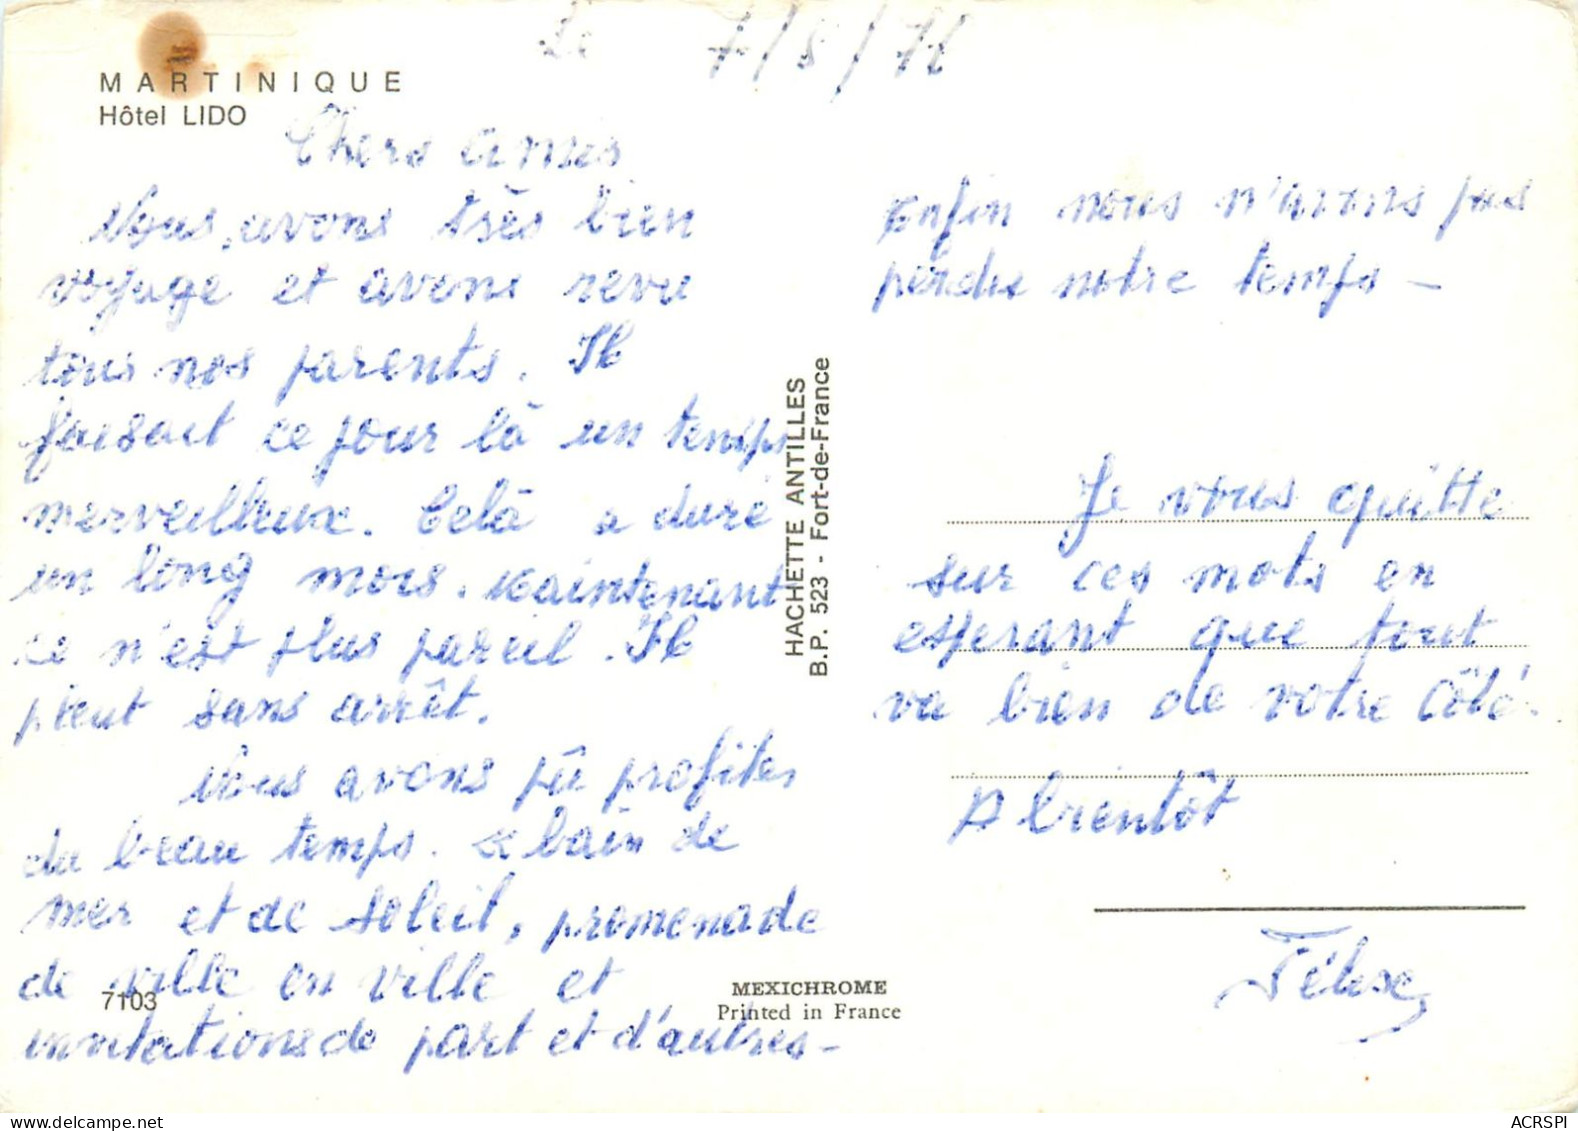 Le 7/8/76
MARTINIQUE
Hôtel LIDO
Chers amis
Nous avons très bien
voyage et avons revu
tous nos parents. Il
faisait ce jour là un temps
merveilleux. Celà a duré
un long mois. Maintenant
ce n'est plus pareil. Il
pleut sans arrêt.
Nous avons pû profiter
du beau temps. bain de
mer et de soleil, promenade
de ville en ville et
invitations de part et d'autres-
7103
HACHETTE ANTILLES
B.P. 523 - Fort-de-France
MEXICHROME
Printed in France
Enfin nous n'avons pas
perdu notre temps -
Je vous quitte
sur ces mots en
esperant que tout
va bien de votre Côté.
A bientôt
ACRSPI